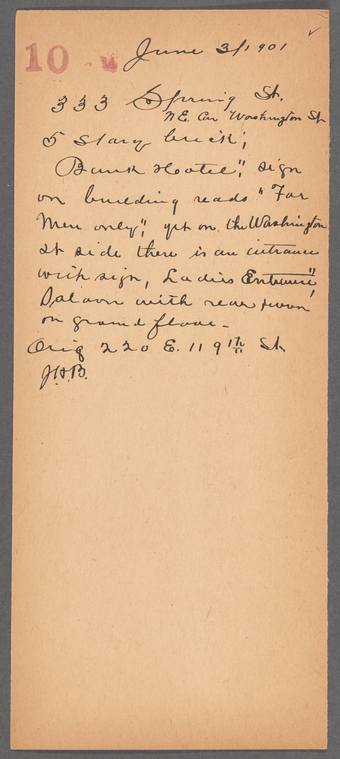 10
June 3/1901
333 Spring St.
N.E. Cor Washington St
5 story brick,
"Bank Hotel", sign
on building reads "For
Men only", yet on the Washington
St side there is an entrance
with sign, Ladies Entrance",
Saloon with rear room
on ground floor -
Orig 220 E. 119th St